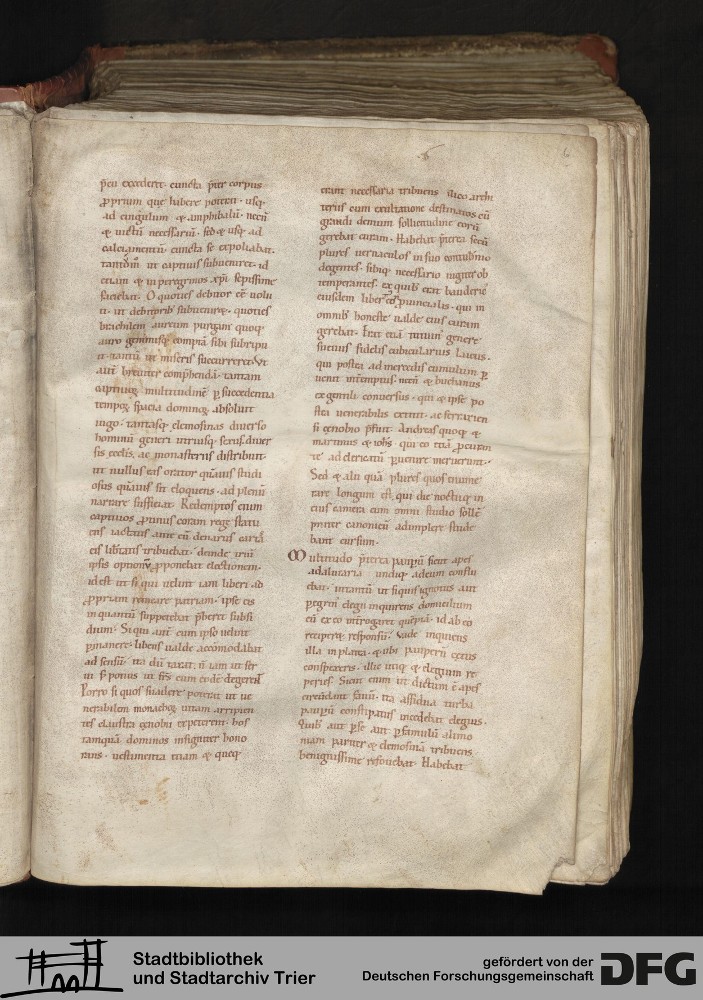 6
p̄cii excederet. cuncta p̄ter corpus
ꝓprium que habere poterat. usq;
ad cingulum & amphibalū. necn̄
& uictū necessariū. sed & usq; ad
calciamentū cuncta se expoliabat.
tantōm ut captiuis subueniret. id
etiam & in peregrinos xp̄i sepissime
faciebat. O quotiēs debitor eē uolu
it. ut debitorib; subueniret. quotiens
brachilem aureum purgans quoq;
auro gemmisq; comptā sibi subripu
it. tantū ut miseris succurreret. Ut
autē breuiter comp̄hendā. tantam
captiuoꝝ multitudinē ꝑ succedentia
tempoꝝ spacia dominoꝝ absoluit
iugo. tantasq; elemosinas diuerso
hominū generi utriusq; sexus. diuer
sis ecclīs. ac monasteriis distribuit.
ut nullus eas orator quāuis studi
osus quāuis sit eloquens. ad plenū
narrare sufficiat. Redemptos enim
captiuos ꝓtinus coram rege statu
ens iactatis ante eū denariis cartā
eis libertatis tribuebat. deinde triū
ipsis optionū ꝓponebat electionem.
id est ut si qui uelint iam liberi ad
ꝓpriam remeare patriam. ipse eis
in quantū suppetebat p̄beret subsi
dium. Si qui autē cum ipso uelint
ꝑmanere. libens ualde accōmodabat
ad sensū. ita dū taxat. n̄ iam ut ser
ui sꝫ potius ut fr̄s cum eodē degerēt.
Porro si quos suadere poterat ut ue
nerabilem monachoꝝ uitam arripien
tes claustra cenobii expeterent. hos
tamquā dominos insigniter hono
rans. uestimenta etiam & queq;
erant necessaria tribuens ilico archi
terius cum exultatione destinatos eū
grandi demum sollicitudine eorū
gerebat curam. Habebat p̄terea secū
plures uernaculos in suo contubnio
degentes. sibiq; necessario iugiter ob
temperantes. ex quib; erat
eiusdem libertꝰ conprouincialis. qui in
omnib; honeste ualde eius curam
gerebat. Erat etiā tituen genere
sueuus fidelis cubicularius laicus.
qui postea ad mercedis cumulum ꝑ
uenit in tempus. necn̄ & buchinus
ex gentili conuersus. qui & ipse po
stea uenerabilis extitit. ac ferrarien
si cenobio p̄fuit. Andreas quoq; &
martinus & ioh̄s. qui eo etiā ꝓcuran
te. ad clericatū ꝑuenire meruerunt.
Sed & alii quā plures quos nume
rare longum est, qui die noctuq; in
eius camera cum omni studio solle
mniter canonicū adimplere stude
bant cursum.
Multitudo p̄terea pauperū sicut apes
ad aluraria undiq; ad eum conflu
ebat. in tantū ut si quis ignotus aut
peregrin̄ eligii inquirens domicilium
cū ex eo interrogaret quēpiā. id ab eo
reciperet responsū. Vade inquiens
illa in platea. & ubi pauperū cetus
conspexeris. illic itaq; & eligium re
peries. Sicut enim ut dictum ē apes
circūdant fauū. ita assidua turba
pauperū constipatus incedebat eligius.
Quib; aut ꝑ se aut ꝑ famulū alimo
niam pariter & elemosinā tribuens
benignissime refouebat. Habebat
Stadtbibliothek
und Stadtarchiv Trier
gefördert von der
Deutschen Forschungsgemeinschaft
DFG